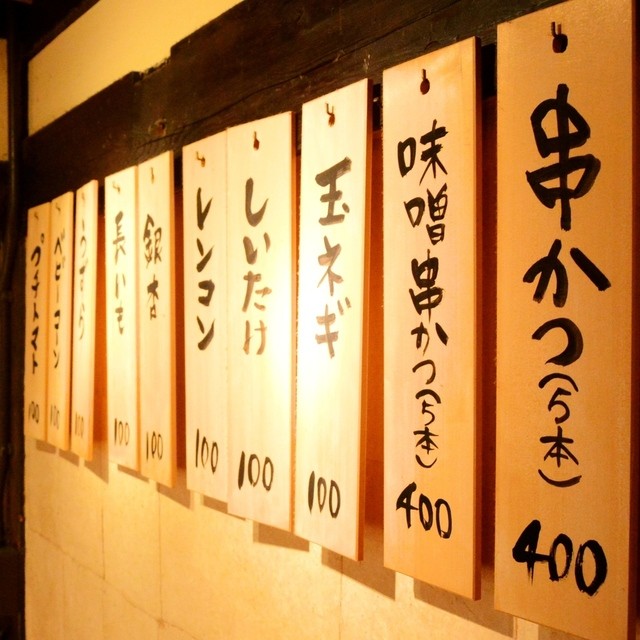 串かつ(5本)
400
味噌串かつ(5本)
400
玉ネギ
100
しいたけ
100
レンコン
100
銀杏
100
長いも
100
ベビーコーン
100
プチトマト
100